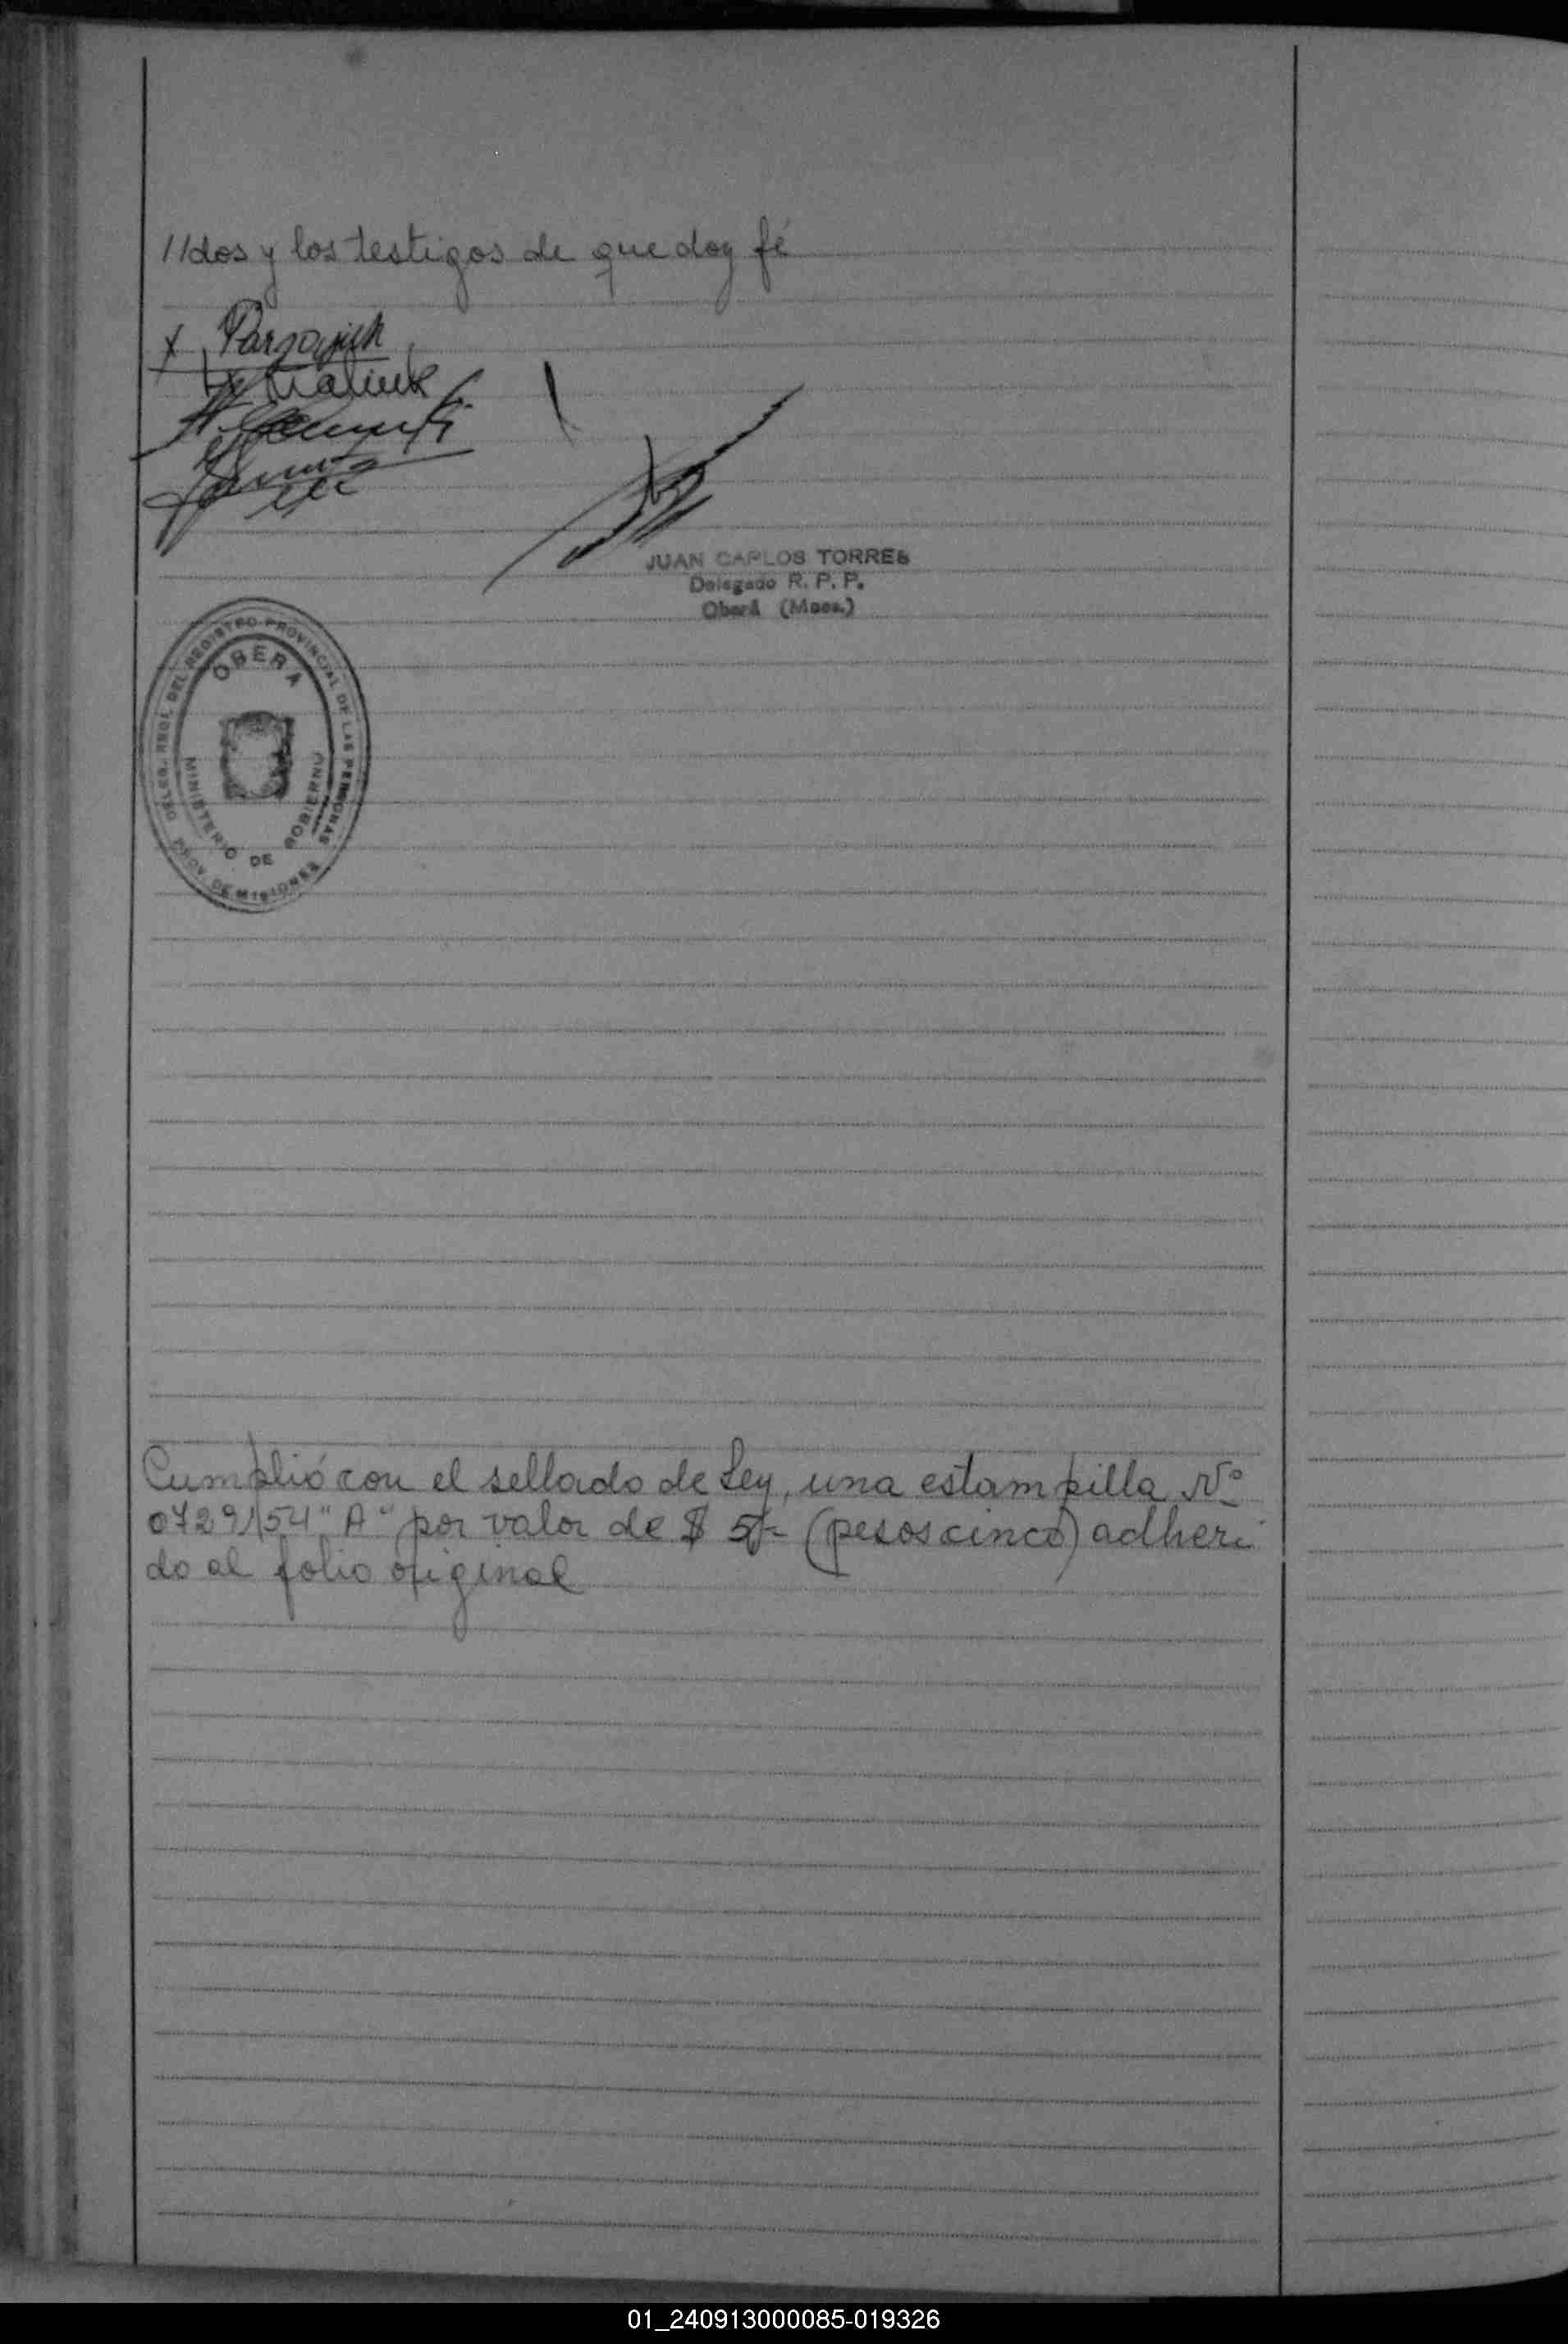 //dos y los testigos de que doy fé
x Parzajuk
JUAN CARLOS TORRES
Delegado R. P. P.
Oberá (Mnes.)
DELEG. REGL. DEL REGISTRO PROVINCIAL DE LAS PERSONAS
OBERA
MINISTERIO DE GOBIERNO
PROV. DE MISIONES
Cumplió con el sellado de Ley, una estampilla Nº
0729154 "A" por valor de $ 5/- (pesos cinco) adheri
do al folio original
01_240913000085-019326